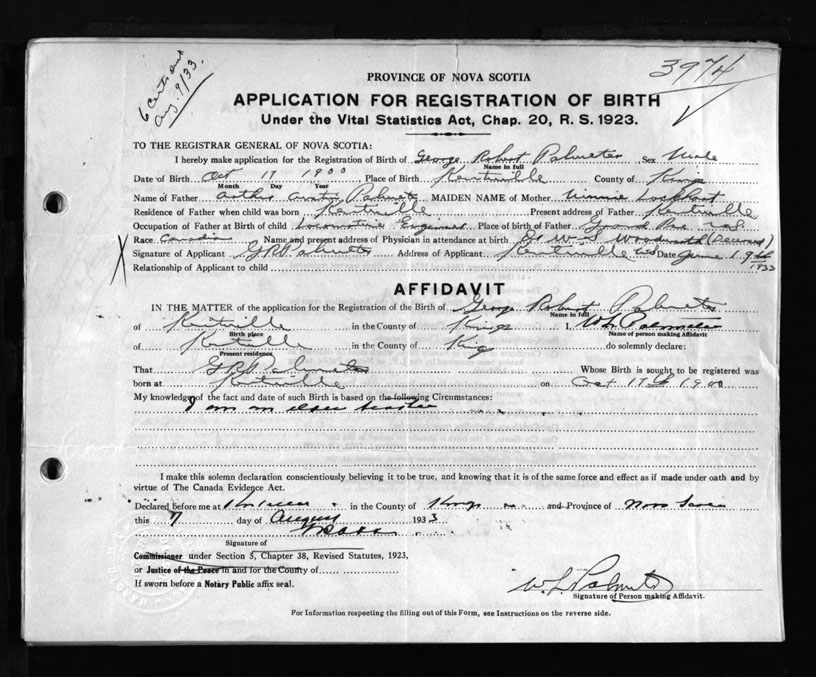 3974
Aug. 9/33
PROVINCE OF NOVA SCOTIA
APPLICATION FOR REGISTRATION OF BIRTH
Under the Vital Statistics Act, Chap. 20, R. S. 1923.
TO THE REGISTRAR GENERAL OF NOVA SCOTIA:
I hereby make application for the Registration of Birth of George Robert Palmeter Sex Male
Name in full
Date of Birth Oct 17 1900 Place of Birth Kentville County of Kings
Month Day Year
Name of Father Palmeter MAIDEN NAME of Mother Minnie Lockhart
Residence of Father when child was born Kentville Present address of Father Kentville
Occupation of Father at Birth of child Locomotive Engineer Place of birth of Father Grand Pre N.S.
Race Canadian Name and present address of Physician in attendance at birth Dr W-S Woodworth (Deceased)
Signature of Applicant G R Palmeter Address of Applicant Kentville NS Date June 1933
Relationship of Applicant to child
AFFIDAVIT
IN THE MATTER of the application for the Registration of the Birth of George Robert Palmeter
Name in full
of Kentville in the County of Kings I, W L Palmeter
Birth place Name of person making Affidavit
of Kentville in the County of Kings do solemnly declare:
Present residence
That G R Palmeter Whose Birth is sought to be registered was
born at Kentville on Oct 17th 1900
My knowledge of the fact and date of such Birth is based on the following Circumstances:
I am an
I make this solemn declaration conscientiously believing it to be true, and knowing that it is of the same force and effect as if made under oath and by
virtue of The Canada Evidence Act.
Declared before me at Kentville in the County of Kings and Province of Nova Scotia
this 7 day of August 1933
Signature of
Commissioner under Section 5, Chapter 38, Revised Statutes, 1923,
or Justice of the Peace in and for the County of
If sworn before a Notary Public affix seal.
W. L. Palmeter
Signature of Person making Affidavit.
For Information respecting the filling out of this Form, see Instructions on the reverse side.